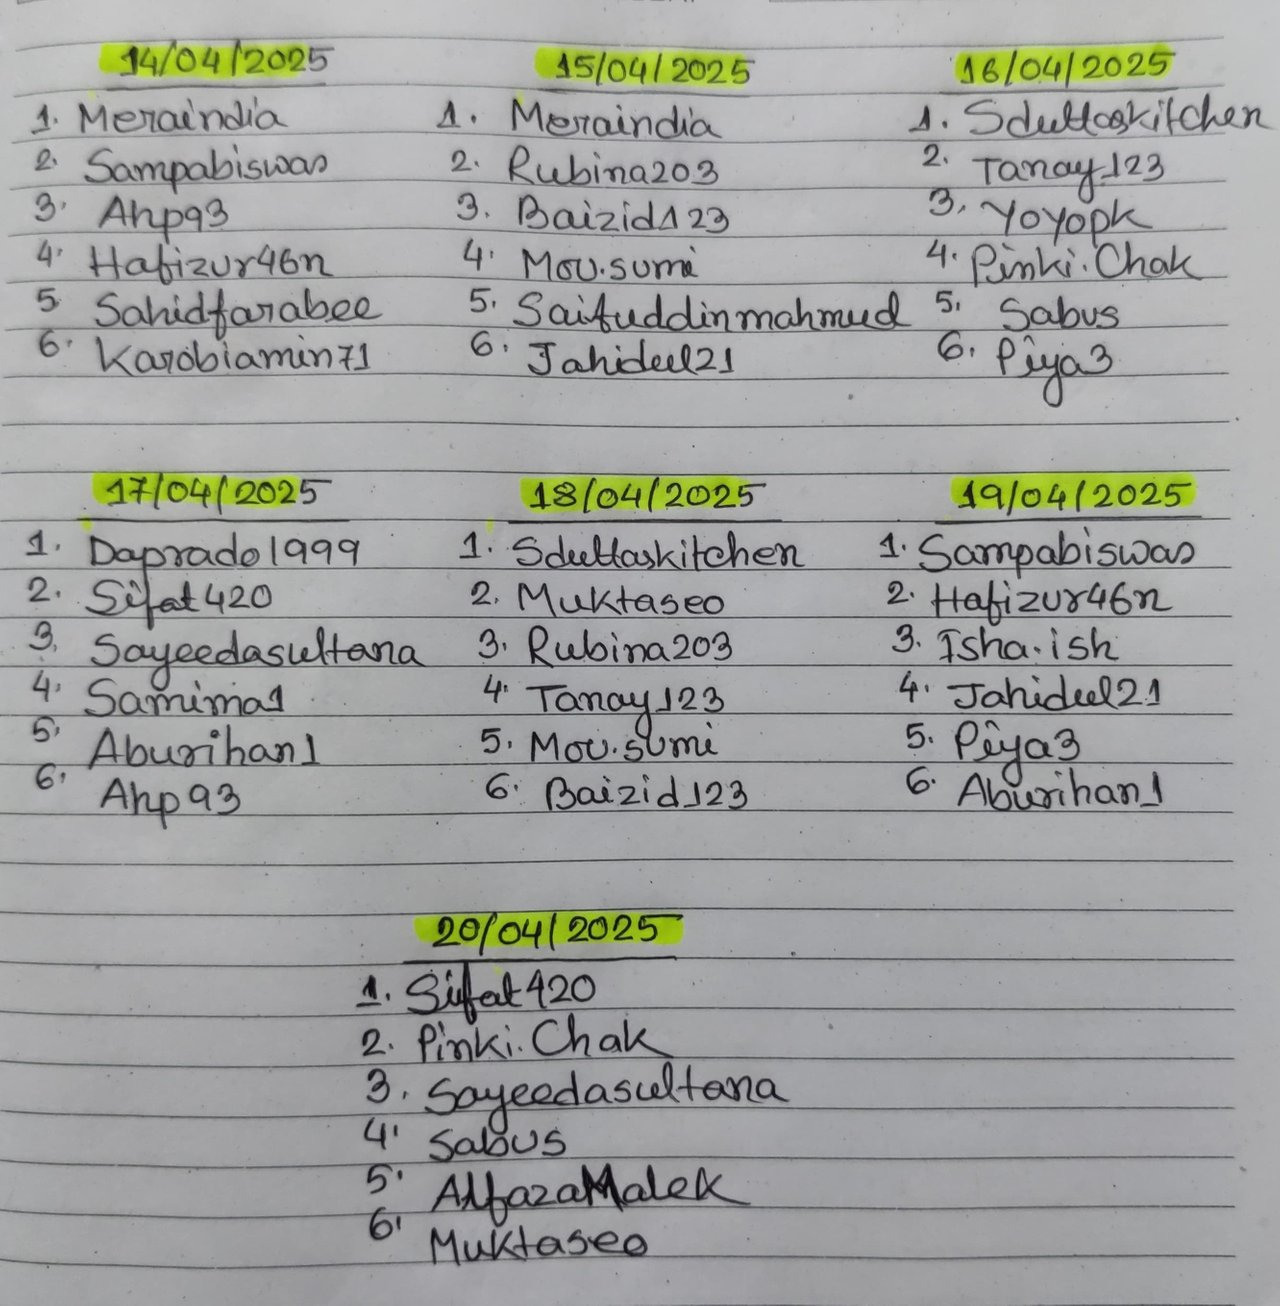 14/04/2025
1. Meraindia
2. Sampabiswas
3. Ahp93
4. Hafizur46n
5. Sahidfarabee
6. Karobiamin71
15/04/2025
1. Meraindia
2. Rubina203
3. Baizid123
4. Mou.sumi
5. Saifuddinmahmud
6. Jahidul21
16/04/2025
1. Sduttaskitchen
2. Tanay123
3. Yoyopk
4. Pinki.Chak
5. Sabus
6. Piya3
17/04/2025
1. Daprado1999
2. Sifat420
3. Sayeedasultana
4. Samima1
5. Aburihan1
6. Ahp93
18/04/2025
1. Sduttaskitchen
2. Muktaseo
3. Rubina203
4. Tanay123
5. Mou.sumi
6. Baizid123
19/04/2025
1. Sampabiswas
2. Hafizur46n
3. Isha.ish
4. Jahidul21
5. Piya3
6. Aburihan1
20/04/2025
1. Sifat420
2. Pinki.Chak
3. Sayeedasultana
4. Sabus
5. AlfazaMalek
6. Muktaseo